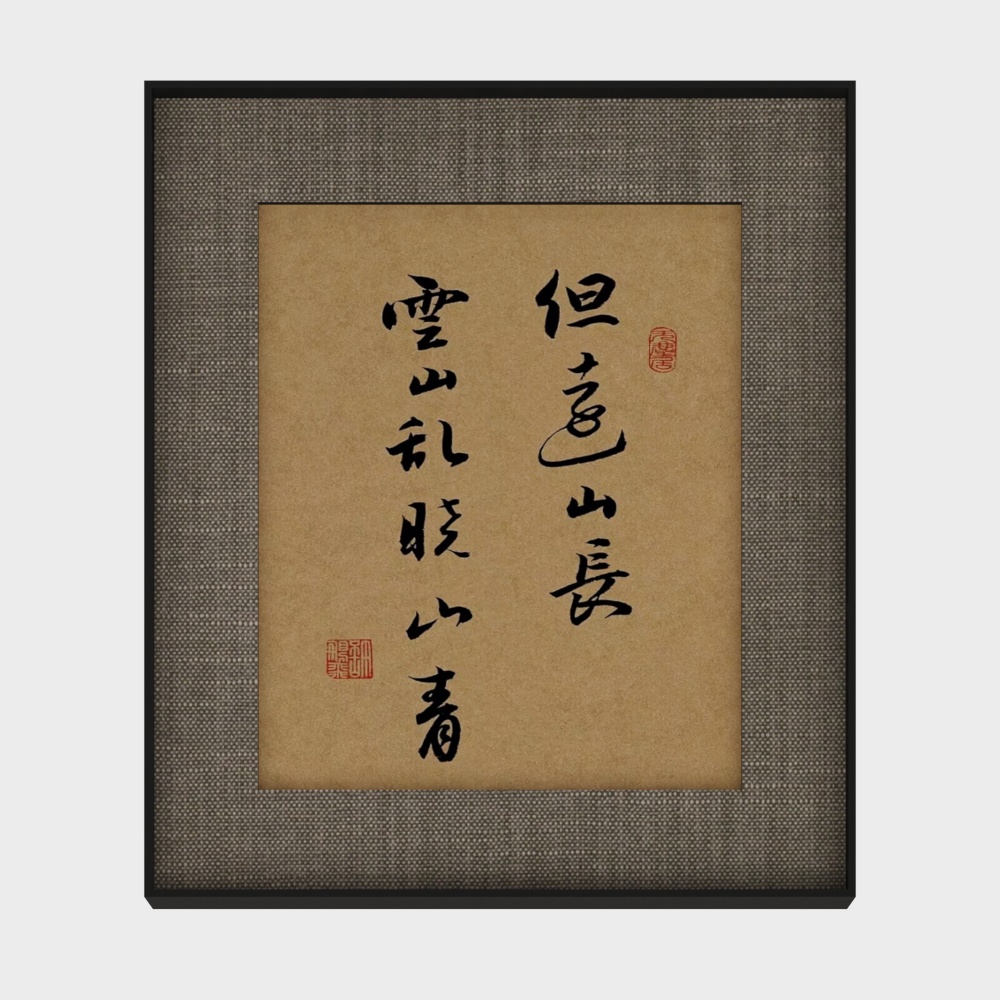 但遠山長
雲山乱晓山青